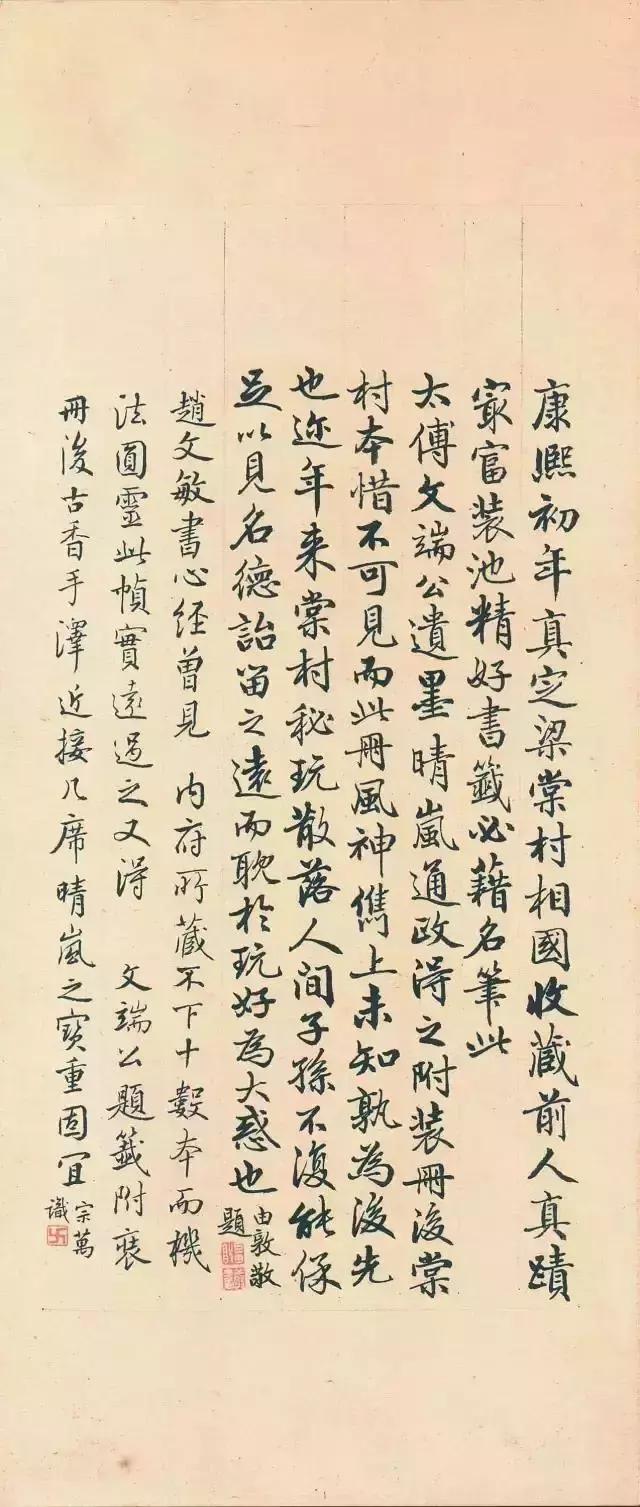 康熙初年真定梁棠村相國收藏前人真蹟
冣富裝池精好書籤必藉名筆此
太傅文端公遺墨晴嵐通政得之附裝冊後棠
村本惜不可見而此冊風神儁上未知孰為後先
也迩年来棠村秘玩散落人间子孫不復能保
足以見名德詒留之遠而耽於玩好為大惑也
由敦敬
題
趙文敏書心经曽見 内府所藏不下十數本而機
法圓靈此幀實遠過之又得 文端公題籤附裝
冊後古香手澤近接几席晴嵐之寶重固宜
宗萬
識